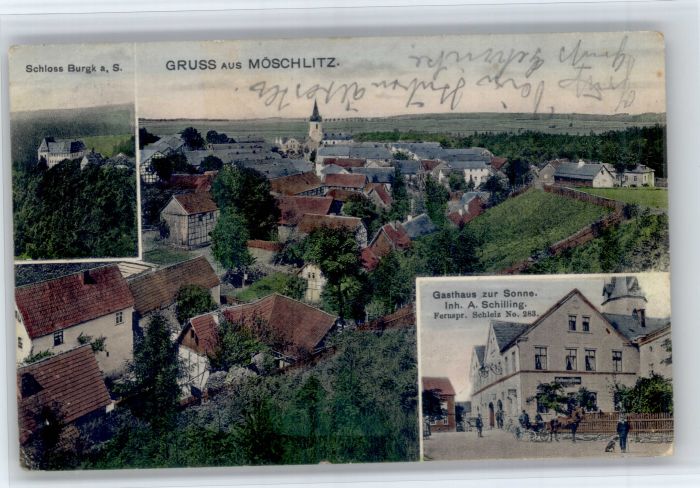 Schloss Burgk a. S.
GRUSS AUS MÖSCHLITZ.
Gasthaus zur Sonne.
Inh. A. Schilling.
Fernspr. Schleiz No. 283.